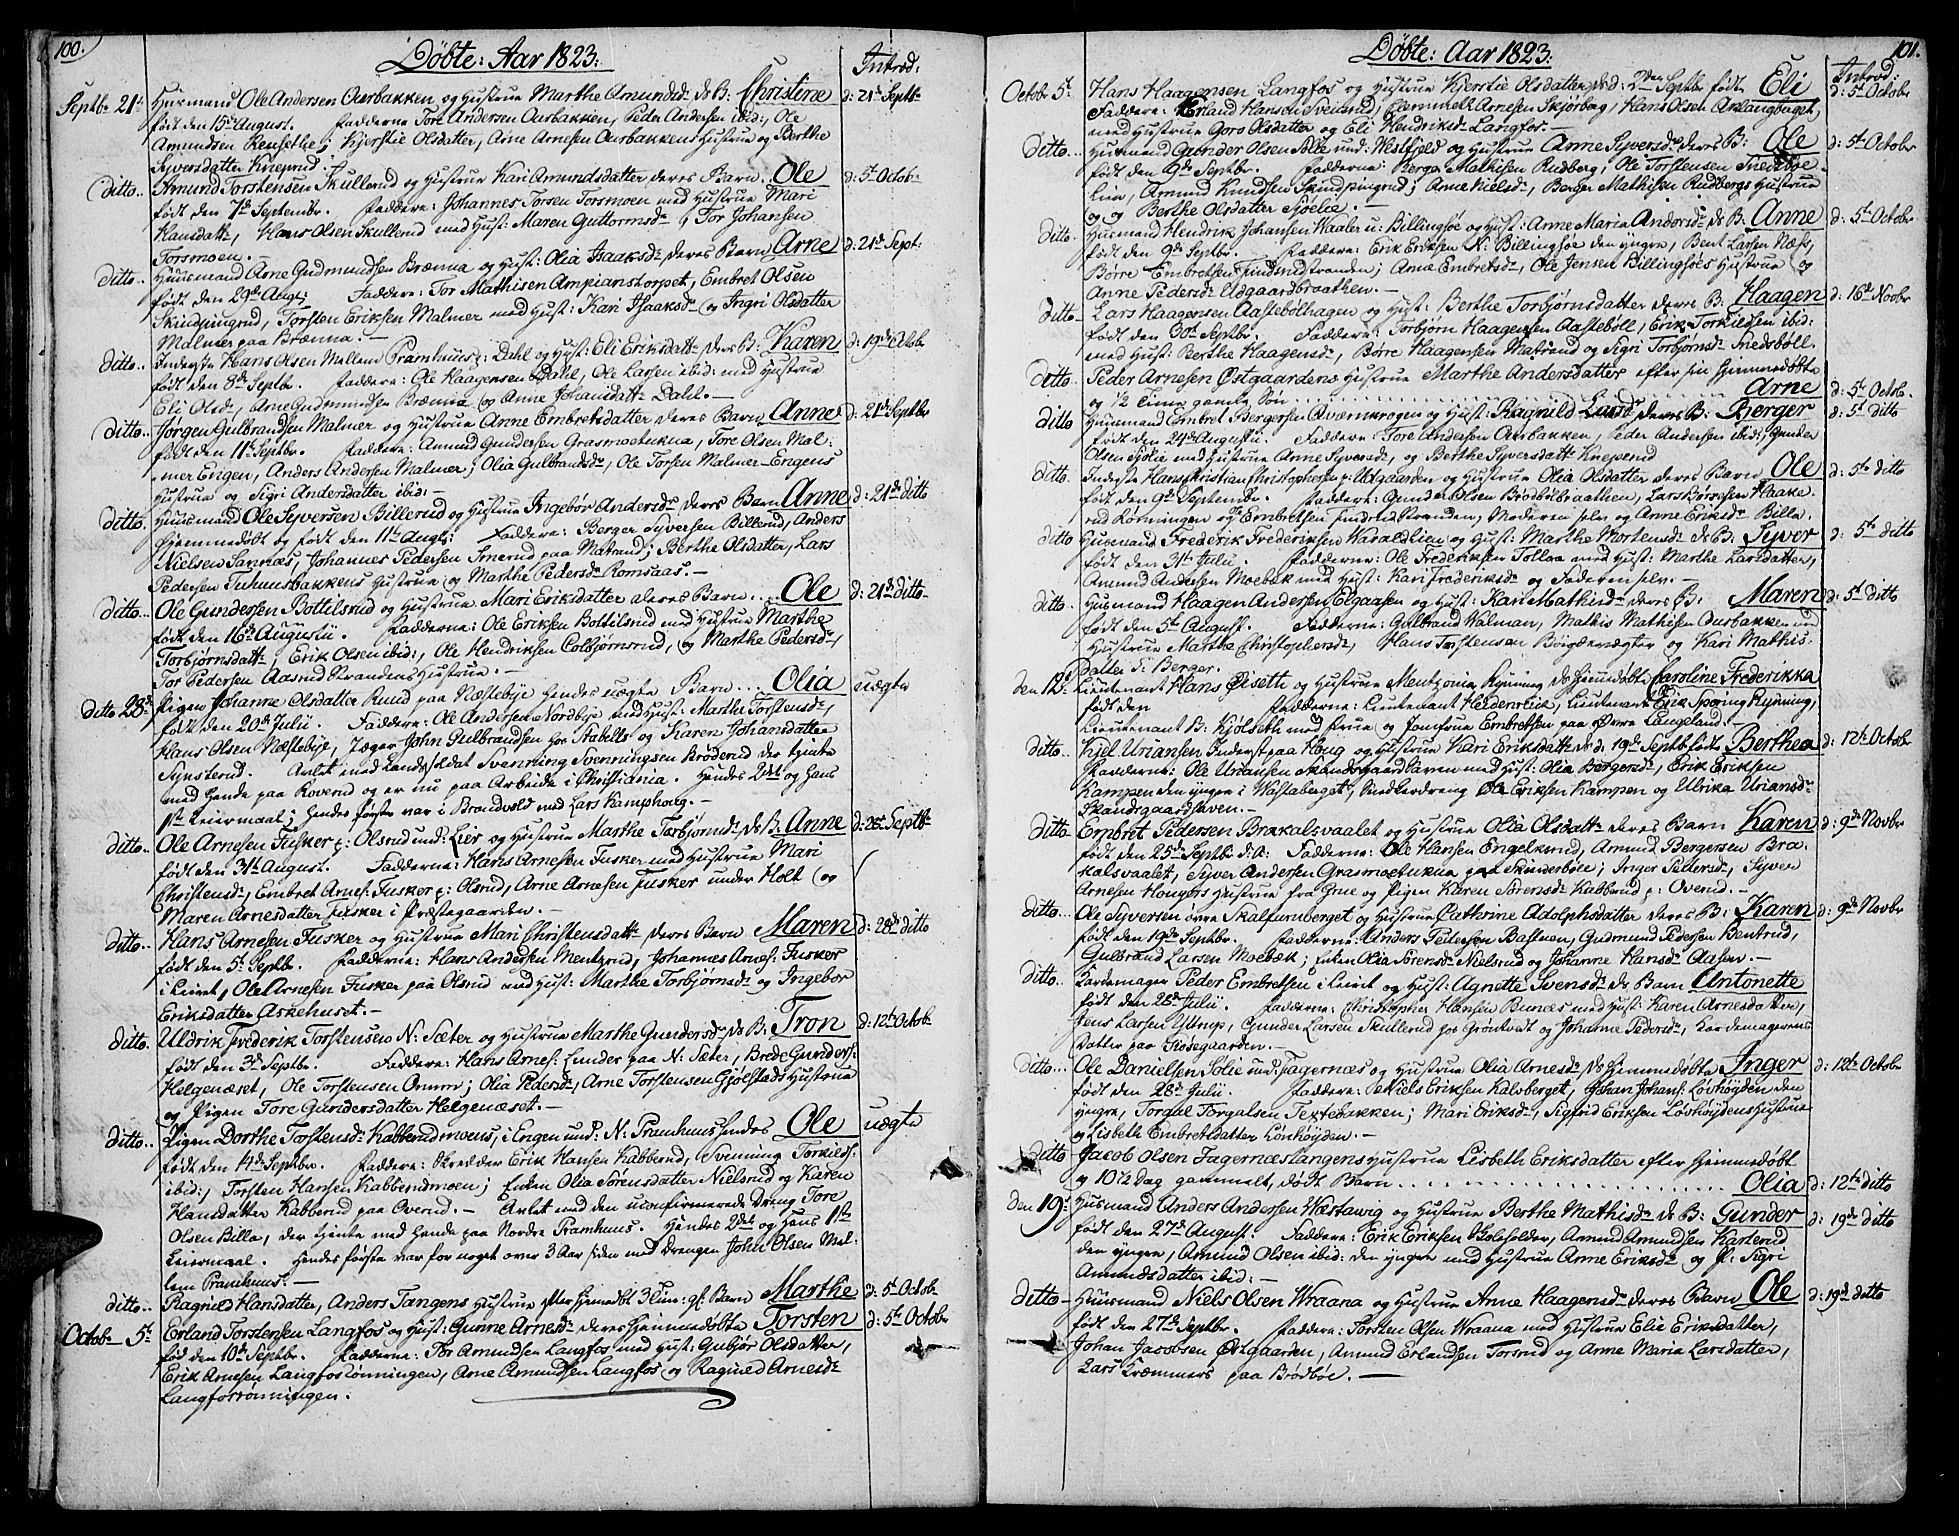 100.
Döbte: Aar 1823.
Introd:
Septbr 21. Huusmand Ole Andersen Aurbakken og Hustrue Marthe Amundsd. ds B: Christine d: 21de Septbr
födt den 15de August. Fadderne Tore Andersen Aurbakken, Peder Andersen ibid:, Ole
Amundsen Rensethe; Kjerstie Olsdatter, Arne Arnesen Aurbakkens Hustrue og Berthe
Syversdatter Kneprud.
ditto.. Amund Torstensen Skullerud og Hustrue Kari Amundsdatter deres Barn.. Ole d: 5te Octob.
födt den 7de Septembr. Faddere: Johannes Torsen Torsmoen med Hustrue Mari
Hansdattr, Hans Olsen Skullerud med Hust: Maren Guttormsdr, Tor Johansen
Torsmoen.
ditto.. Huusmand Arne Gudmundsen Brænna og Hust: Olia Isaaksdr deres Barn Arne d: 21de Sept:
födt den 29de Aug: Faddere: Tor Mathisen Ampianstorpet, Embret Olsen
Skindpingrud, Torsten Eriksen Malmer med Hust: Kari Isaaksdr og Ingri Olsdatter
Malmer paa Brænna.
ditto.. Inderste Hans Olsen Mellem Pramhuus p: Dahl og Hust: Eli Eriksdattr deres B: Karen d: 19de Octobr
födt den 8de Septbr. Faddere: Ole Haagensen Dahl, Ole Larsen ibid: med Hustrue
Eli Olsdr, Arne Gudmundsen Brænna og Anne Johansdattr Dahl.
ditto.. Jörgen Gulbrandsen Malmer og Hustrue Anne Embretsdatter deres Barn Anne d: 21de Septbr
födt den 11te Septbr. Faddere: Amund Gundersen Grasmoetukna, Tore Olsen Mal-
mer Engen, Anders Andersen Malmer; Olia Gulbrandsdr, Ole Torsen Malmer-Engens
Hustrue og Sigri Andersdatter ibid:
ditto. Huusmand Ole Syversen Billerud og Hustrue Ingebor Andersdr deres Barn Anne d: 21de ditto
Hjemmedöbt og födt den 11te Aug: Faddere: Berger Syversen Billerud, Anders
Nielsen Sannæs, Johannes Pedersen Smerud paa Matrand; Berthe Olsdatter, Lars
Pedersen Tuhuusbakkens Hustrue og Marthe Pedersdr Romsaas.
ditto.. Ole Gundersen Bottilsrud og Hustrue Mari Eriksdatter deres Barn... Ole d: 21de ditto
födt den 16de Augustii. Fadderne: Ole Eriksen Bottilsrud med Hustrue Marthe
Torbjörnsdattr, Erik Olsen ibid:, Ole Hendriksen Colbjörnsrud, og Marthe Pedersdr,
Tor Pedersen Aasnd Strandens Hustrue.
ditto 28de Pigen Johanne Olsdatter Rund paa Næstebye hendes uægte Barn... Olia uægte
födt den 20de Julii. Faddere: Ole Andersen Nordbye med Hust: Marthe Torstensdr,
Hans Olsen Næstebye, Jæger John Gulbrandsen hos Stabells og Karen Johansdatter
Synsterud. Avlet med Landsoldat Svenning Svenningsen Bröderud der tjente
med hende paa Roverud og er nu paa Arbeide i Christiania. Hendes 2det og hans
1ste Leiermaal; hendes förste var i Brandvold med Lars Kamphoug.
ditto.. Ole Arnesen Fusker p: Olsrud und: Leir og Hustrue Marthe Torbjörnsdr ds B: Anne d: 28de Septbr
födt den 31te August. Fadderne: Hans Arnesen Fusker med Hustrue Mari
Christensdr, Embret Arnes: Fusker p: Olsrud, Arne Arnesen Fusker under Holt og
Maren Arnesdatter Fusker i Præstegaarden.
ditto.. Hans Arnesen Fusker og Hustrue Mari Christensdattr deres Barn Maren d: 28de ditto
födt den 5te Septbr. Fadderne: Hans Andersen Mentzrud, Johannes Arnes: Fusker
i Leiret, Ole Arnesen Fusker paa Olsrud med Hust: Marthe Torbjörnsdr og Ingebor
Eriksdatter Askehuset.
ditto. Uldrik Frederik Torstensen N: Sæter og Hustrue Marthe Gundersdr ds B: Tron d: 12te Octobr
födt den 3de Septbr. Faddere: Hans Arnes: Linder paa N: Sæter, Brede Gunders:
Helgenæset, Ole Torstensen Omm; Olia Pedersdr, Arne Torstensen Gjölstads Hustrue
og Pigen Tore Gundersdatter Helgenæset.
ditto.. Pigen Dorthe Torstensdr Kabberudmoens, i Engen und: N: Pramhuus hendes Ole uægte
födt den 14de Septbr. Faddere: Skredder Erik Hansen Kabberud, Svenning Torkilds:
ibid:, Torsten Hansen Kabberudmoen; Enken Olia Sörensdatter Nielsrud og Karen
Hansdatter Kabberud paa Overud. Avlet med den uconfirmerede Dreng Tore
Olsen Billa, der tjente med hende paa Nordre Pramhuus. Hendes 2det og hans 1ste
Leiermaal. Hendes förste var for noget over 3 Aar siden med Drengen John Olsen Mel-
lem Pramhuus.
ditto.. Ragnild Hansdatter, Anders Tangens Hustrue efter Hjemedöbt 3 Tim: gl: Barn Marthe d: 5te Octobr
Octobr 5te Erland Torstensen Langfos og Hust: Gunne Arnesdr deres hjemmedöbte Torsten d: 5te Octobr
föd den 10de Septbr. Fadderne: Tor Amundsen Langfos med Hust: Gubjör Olsdatter,
Erik Arnesen Langfosrönningen, Arne Amundsen Langfos og Ragnild Arnesdr
Langforrönningen.
101.
Döbte: Aar 1823.
Introd:
Octobr 5te Hans Haagensen Langfos og Hustrue Kjerstie Olsdatter ds d: 2den Septbr födt Eli d: 5te Octobr
Faddere: Erland Hansen Sveilund, Gammelt Arnesen Skjörberg, Hans Olsen Anlangberget,
med Hustrue Goro Olsdatter og Eli Hendriksdr Langfos.
ditto... Huusmand Gunder Olsen Sölie und: Westfjeld og Hustrue Arne Syversdr deres B: Ole d: 5te Octobr
födt den 9de Septbr. Faddere: Berger Mathisen Rudberg, Ole Torstensen Fredsböe-
Lien, Amund Knudsen Skindpingrud; Arne Nielsdr, Berger Mathisen Rudbergs Hustrue
og Berthe Olsdatter Sjölie.
ditto. Huusmand Hendrik Johansen Waaler u: Billingsöe og Hust: Anne Maria Andersdr ds B. Anne d: 5te Octobr
födt den 9de Septbr. Faddere: Erik Eriksen N: Billingsöe den yngre, Bent Larsen Næss,
Börre Embretsen Findsrudstranden; Anne Embretsdr, Ole Jensen Billingsöes Hustrue og
Anne Pedersdr Udgaardbraathen.
ditto Lars Haagensen Aastebölhagen og Hust: Berthe Torbjörnsdatter deres B: Haagen d: 16de Novbr
födt den 30te Septbr. Faddere: Torbjörn Haagensen Aasteböll, Erik Torkildsen ibid:
med Hust: Berthe Haagensdr, Börre Haagensen Matrand og Sigri Torbjörnsdr Friedsböll.
ditto. Peder Arnesen Östgaardens Hustrue Marthe Andersdatter efter sin hjemmedöbte
og 1/2 Time gamle Sön .... Arne d: 5te Octobr.
ditto Huusmand Embret Bergersen Qvernkrogen og Hust: Ragnild Larsdr deres B: Berger d: 5te ditto
födt den 24de Augustii. Faddere: Tore Andersen Aurbakken, Peder Andersen ibid:, Gunder
Olsen Sjölie med Hustrue Anne Syversdr, og Berthe Syversdattr Kneperud
ditto. Inderste Hans Christian Christophersen p: Udgaarden og Hustrue Olia Olsdatter deres Barn Ole d: 5te ditto
födt den 9de Septembr. Faddere: Gunder Olsen Brödbölbraathen, Lars Börresen Haake-
rud Rönningen og Embretsen Findsrud Stranden, Moderen selv og Anne Eriksdr Billa.
ditto Huusmand Frederik Frederiksen Haraldlien og Hust: Marthe Mortensdr ds B: Syver d: 5te ditto
födt den 31te Julii. Fadderne: Ole Frederiksen Tollaa med Hust: Marthe Larsdatter,
Amund Andersen Moebæk med Hust: Kari Frederiksdr og Faderen selv.
ditto. Huusmand Haagen Andersen Elgaasen og Hust: Kari Mathisdr deres B: Maren d: 5te ditto
födt den 5te August. Fadderne: Gulbrand Walman, Mathis Mathisen Aurbakken med
Hustrue Marthe Christophersdr, Hans Torstensen Böigdevægter og Kari Mathis-
datter p: Berger.
den 12te Lieutenant Hans Öiseth og Hustrue Mentzonia Rynning ds hjemmedöbte Caroline Frederikka
födt den Fadderne: Lieutenant Heldenreich, Lieutenant Erik Sporing Rynning,
Lieutenant B: Kjölseth med Frue og Jomfrue Embretsen paa Övre Langeland.
ditto. Kjel Uriansen Inderst paa Houg og Hustrue Kari Eriksdattr ds d: 19de Septbr födt Berthea d: 12te Octobr
Fadderne: Ole Uriansen Skandsgaardhaven med Hust: Olia Bergersdr, Erik Eriksen
Kampen den yngre i Wastaberget, Snedkerdreng Ole Eriksen Kampen og Ulrika Uriansdr
Skandsgaardhaven.
ditto Embret Pedersen Brakalsvaalet og Hustrue Olia Olsdattr deres Barn Karen d: 9de Novbr
födt den 25de Septbr d: A: Fadderne: Ole Hansen Engelkerud, Amund Bergersen Bra-
kalsvaalet, Syver Andersen Grasmoetukna paa Skinderböle; Inger Pedersdr, Syver
Arnesen Hougers Hustrue fra Grue og Pigen Karen Sörensdr Kabberud p: Overud.
ditto... Ole Syversen övre Skalfurnberget og Hustrue Cathrine Adolphsdatter deres B: Karen d: 9de Novbr
födt den 19de Septbr. Faddere: Anders Pedersen Bastnen, Gudmund Pedersen Bentrud,
Gulbrand Larsen Moebæk; Enken Olia Sörensdr Nielsrud og Johanne Hansdr Aasen.
ditto Kardemager Peder Embretsen i Leiret og Hust: Agnette Svensdr ds Barn Antonette
födt den 28de Julii. Faddere: Christopher Hansen Bunæs med Hust: Karen Arnesdatter,
Jens Larsen Uttrup, Gunder Larsen Skullerud hos Gröntvedt og Johanne Pedersdr, Kardemagerens
Datter paa Skösegaarden.
ditto... Ole Danielsen Sölie und: Fagernæs og Hustrue Olia Arnesdr ds hjemmedöbte Inger d: 12te Octobr
födt den 28de Julii. Faddere: Niels Eriksen Kalsberget, Johan Johans: Lövhöyden den
yngre, Torgal Torgalsen Textebakken; Mari Eriksdr, Sigfrid Eriksen Lövhöydens Hustrue
og Lisbeth Embretsdatter Lönhöyden.
ditto Jacob Olsen Fagernæstangens Hustrue Lisbeth Eriksdatter efter hjemmedöbt
og 10 1/2 Dag gammelt, död Barn .... Olia d: 12te ditto
den 19de Huusmand Anders Andersen Wæstavig og Hustrue Berthe Mathisdr ds B: Gunder d: 19de ditto
födt den 27de August. Faddere: Erik Eriksen Bolsfolder, Amund Amundsen Karterud
den yngre, Amund Olsen ibid: den yngre med Hustrue Anne Eriksdr og P: Sigri
Amundsdatter ibid:
ditto Huusmand Niels Olsen Wraana og Hustrue Anne Haagensdr deres Barn Ole d: 19de ditto
födt den 27de Septbr. Faddere: Torsten Olsen Wraana med Hustrue Elie Eriksdatter,
Johan Jacobsen Östgaarden, Amund Erlandsen Torsrud og Anne Maria Larsdatter,
Lars Kræmmers paa Brödböe.